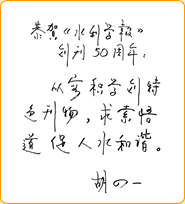 恭贺《水利学报》
创刊50周年:
从容积学创特
色刊物,求索悟
道促人水和谐。
胡四一